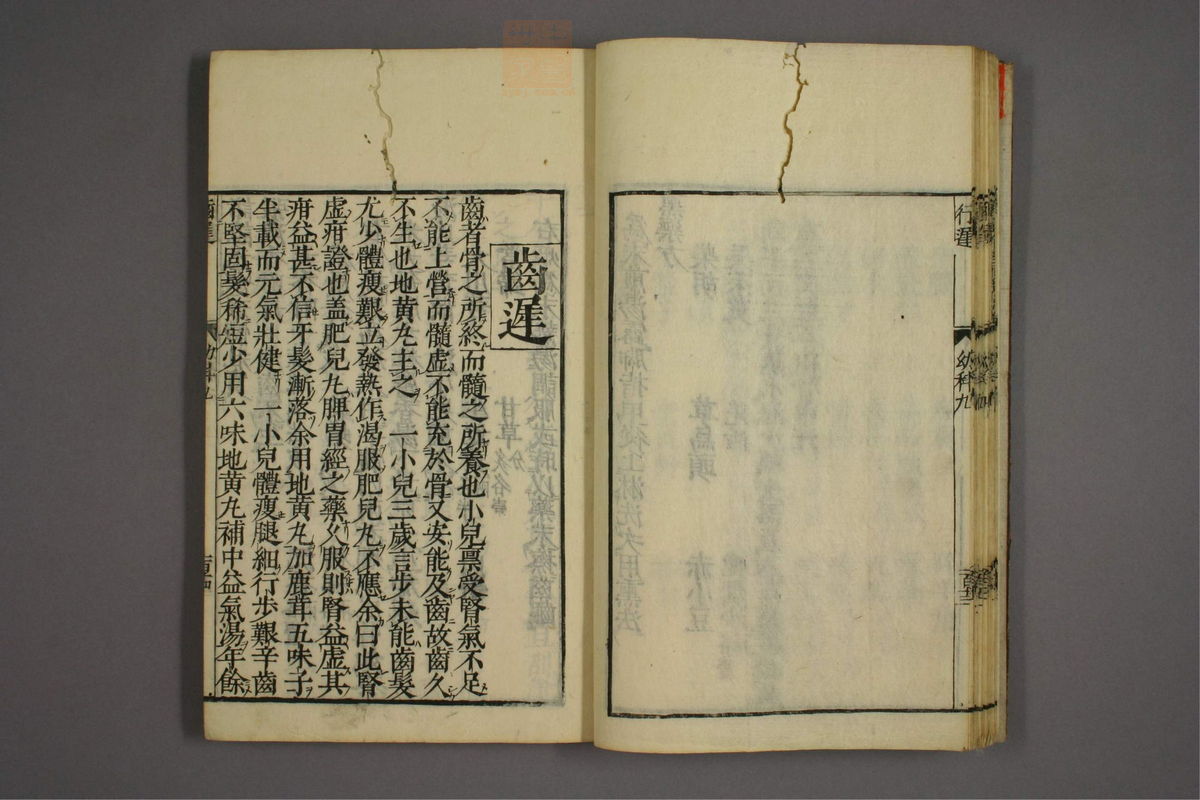 行遲
幼科九
齒遲
齒者骨之所終而髓之所養也小兒稟受腎氣不足
不能上營而髓虛不能充於骨又安能及齒故齒久
不生也地黃丸主之 一小兒三歲言步未能齒髮
尤少體瘦艱立發熱作渴服肥兒丸不應余曰此腎
虛疳證也盖肥兒丸脾胃經之藥久服則腎益虛其
疳益甚不信牙髮漸落余用地黃丸加鹿茸五味子
半載而元氣壯健 一小兒體瘦腿細行步艱辛齒
不堅固髮稀短少用六味地黃丸補中益氣湯年餘